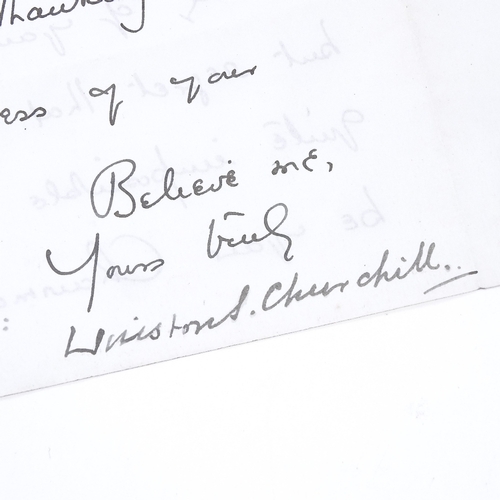 Thanking
ess of your
Believe me,
Yours truly
Winston S. Churchill.